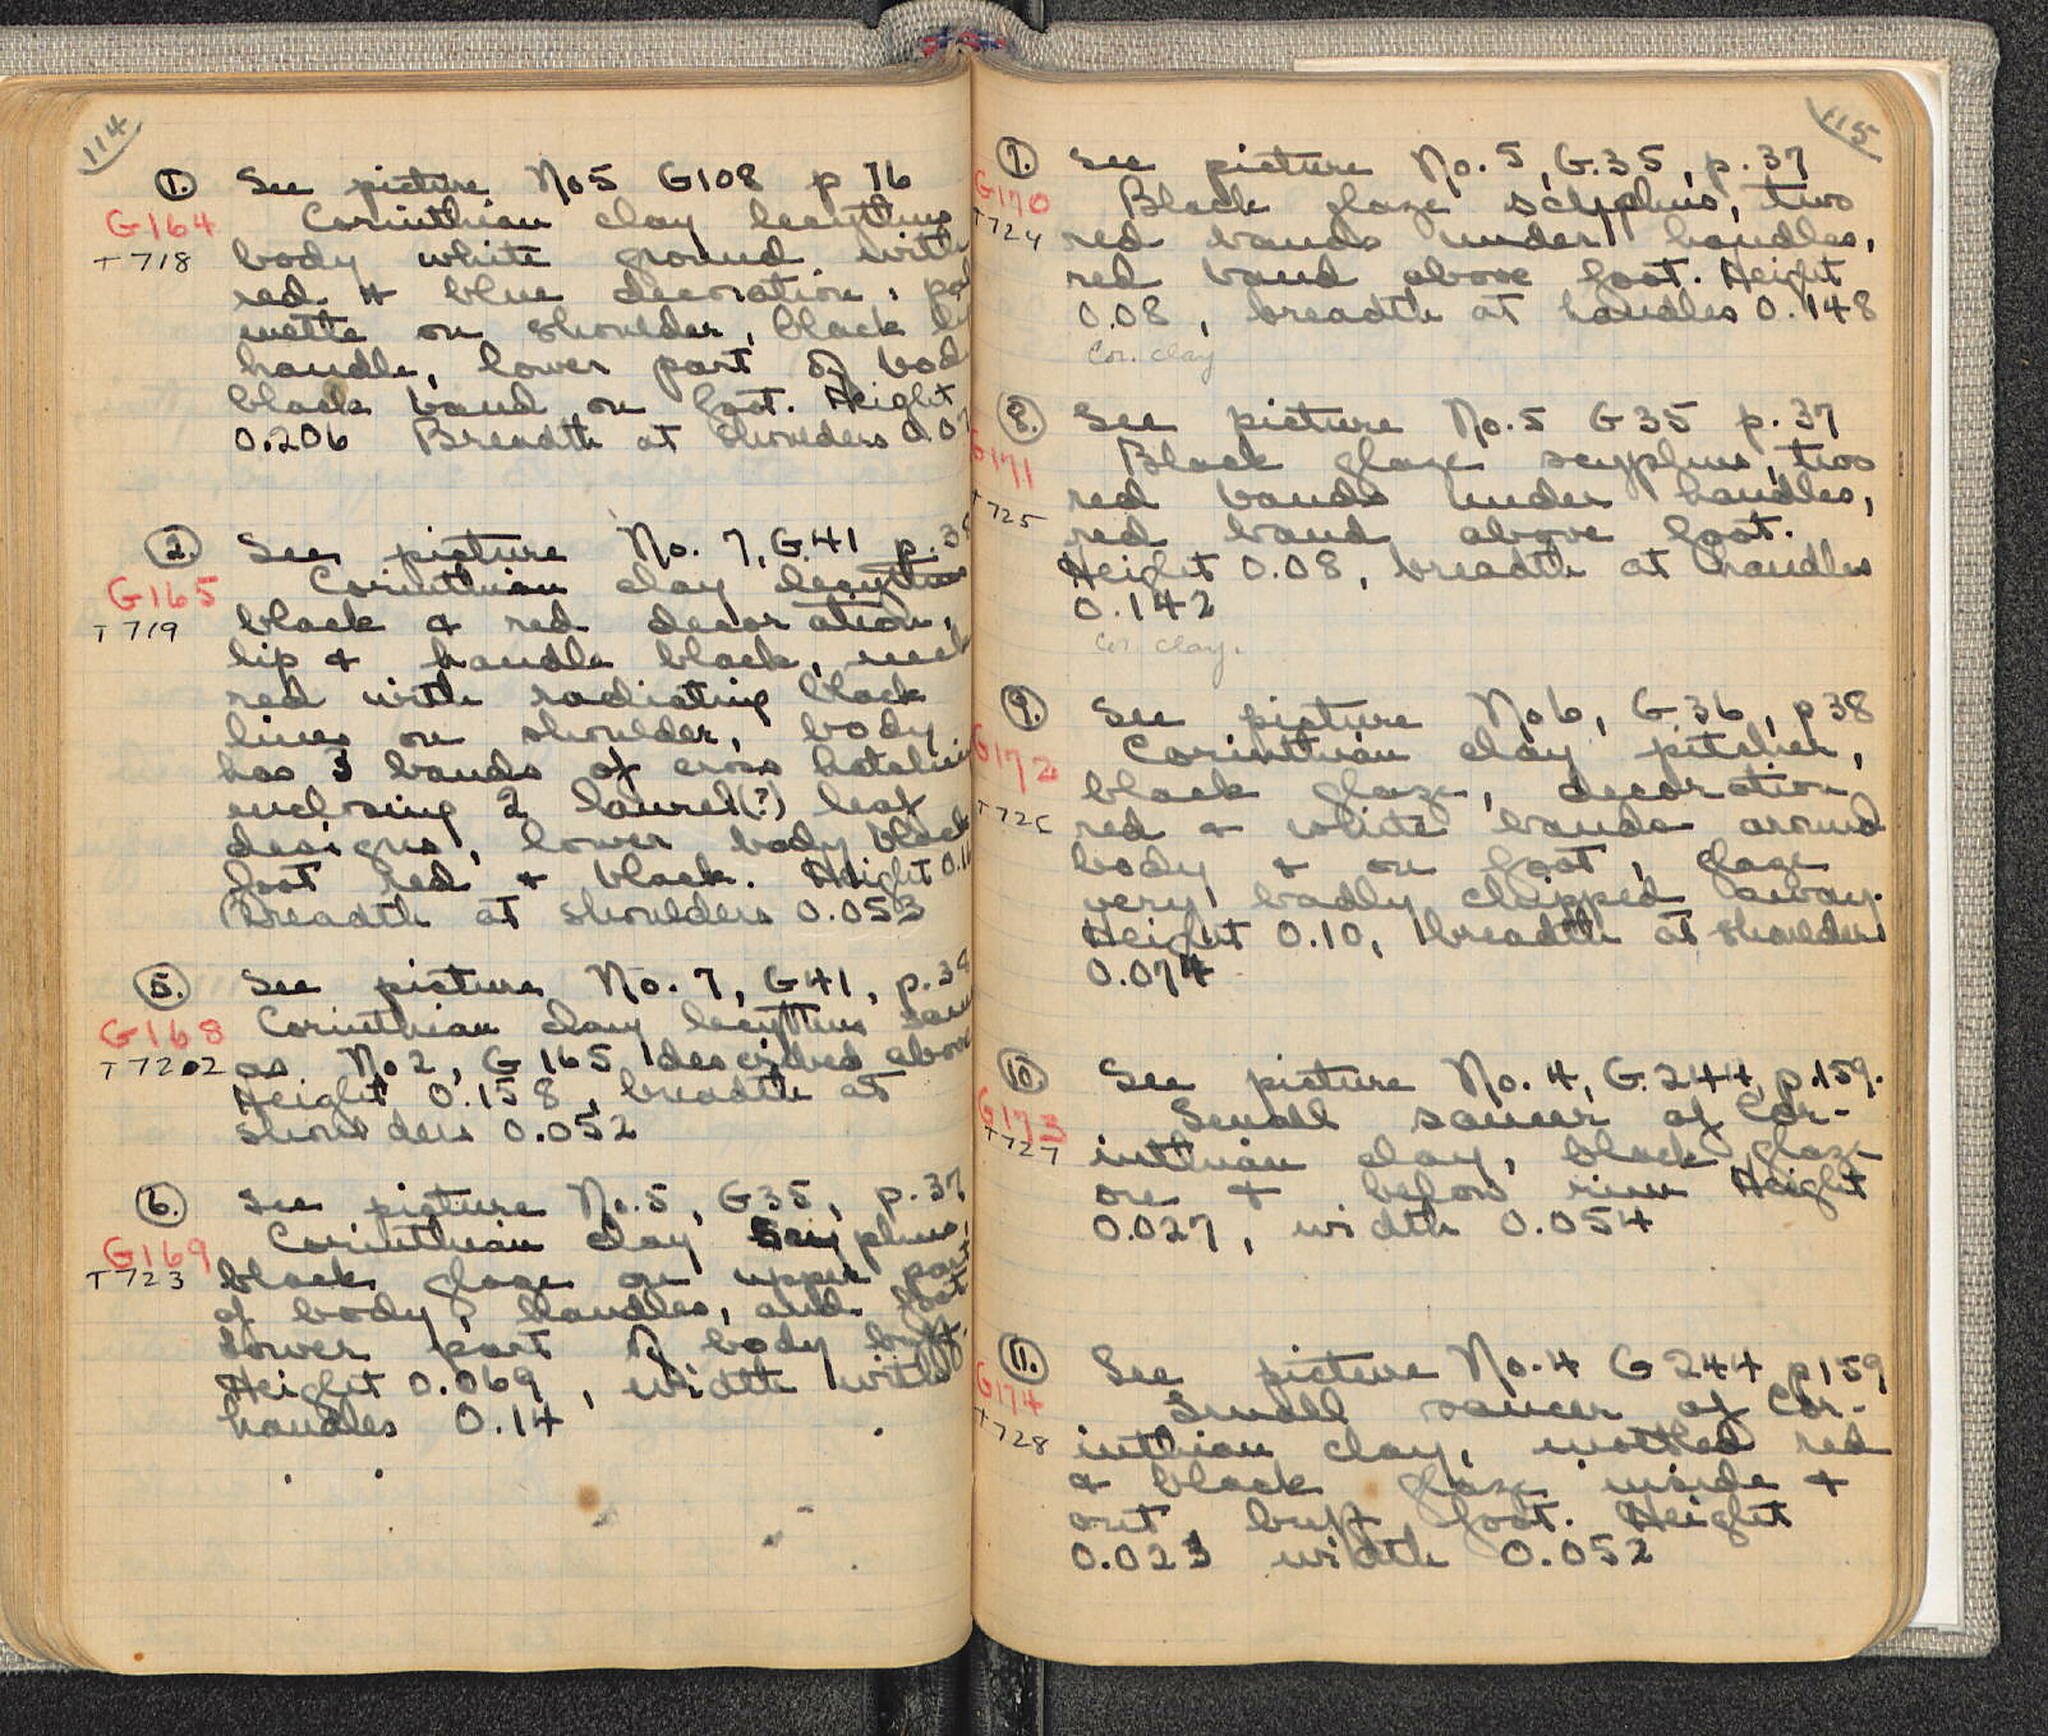 114
① See picture No 5 G108 p 76
G164 Corinthian clay lecythus
T 718 body white ground with
red & blue decoration, pal
mette on shoulder, black
handle, lower part of bod
black band on foot. Height
0.206 Breadth at shoulders 0.07
② See picture No. 7, G.41 p. 38
G165 Corinthian clay lecythus
T 719 black & red decoration,
lip & handle black, neck
red with radiating black
lines on shoulder, body
has 3 bands of cross hatchin
enclosing 2 laurel(?) leaf
designs, lower body black
foot red & black. Height
Breadth at shoulders 0.053
⑤ See picture No. 7, G41, p. 38
G168 Corinthian clay lecythus same
T 7202 as No 2, G 165 described above
Height 0.158, breadth at
shoulders 0.052
⑥ See picture No. 5, G35, p. 37
G169 Corinthian clay scyphus,
T 723 black glaze on upper part
of body, handles, and foot
lower part of body buff.
Height 0.069, width with
handles 0.14
115
⑦ See picture No. 5, G.35, p. 37
G170 Black glaze scyphus, two
T 724 red bands under handles,
red band above foot. Height
0.08, breadth at handles 0.148
Cor. clay
⑧ See picture No. 5 G35 p. 37
G171 Black glaze scyphus, two
T 725 red bands under handles,
red band above foot.
Height 0.08, breadth at handles
0.142
Cor. clay.
⑨ See picture No 6, G.36, p 38
G172 Corinthian clay pitcher,
T 726 black glaze, decoration
red & white bands around
body & on foot, glaze
very badly chipped away.
Height 0.10, breadth at shoulders
0.074
⑩ See picture No. 4, G.244, p.159.
G173 Small saucer of Cor-
T 727 inthian clay, black glaze
on & below rim Height
0.027, width 0.054
⑪ See picture No. 4 G 244 p159
G174 Small saucer of Cor-
T 728 inthian clay, mottled red
& black glaze inside &
out, buff foot. Height
0.023 width 0.052